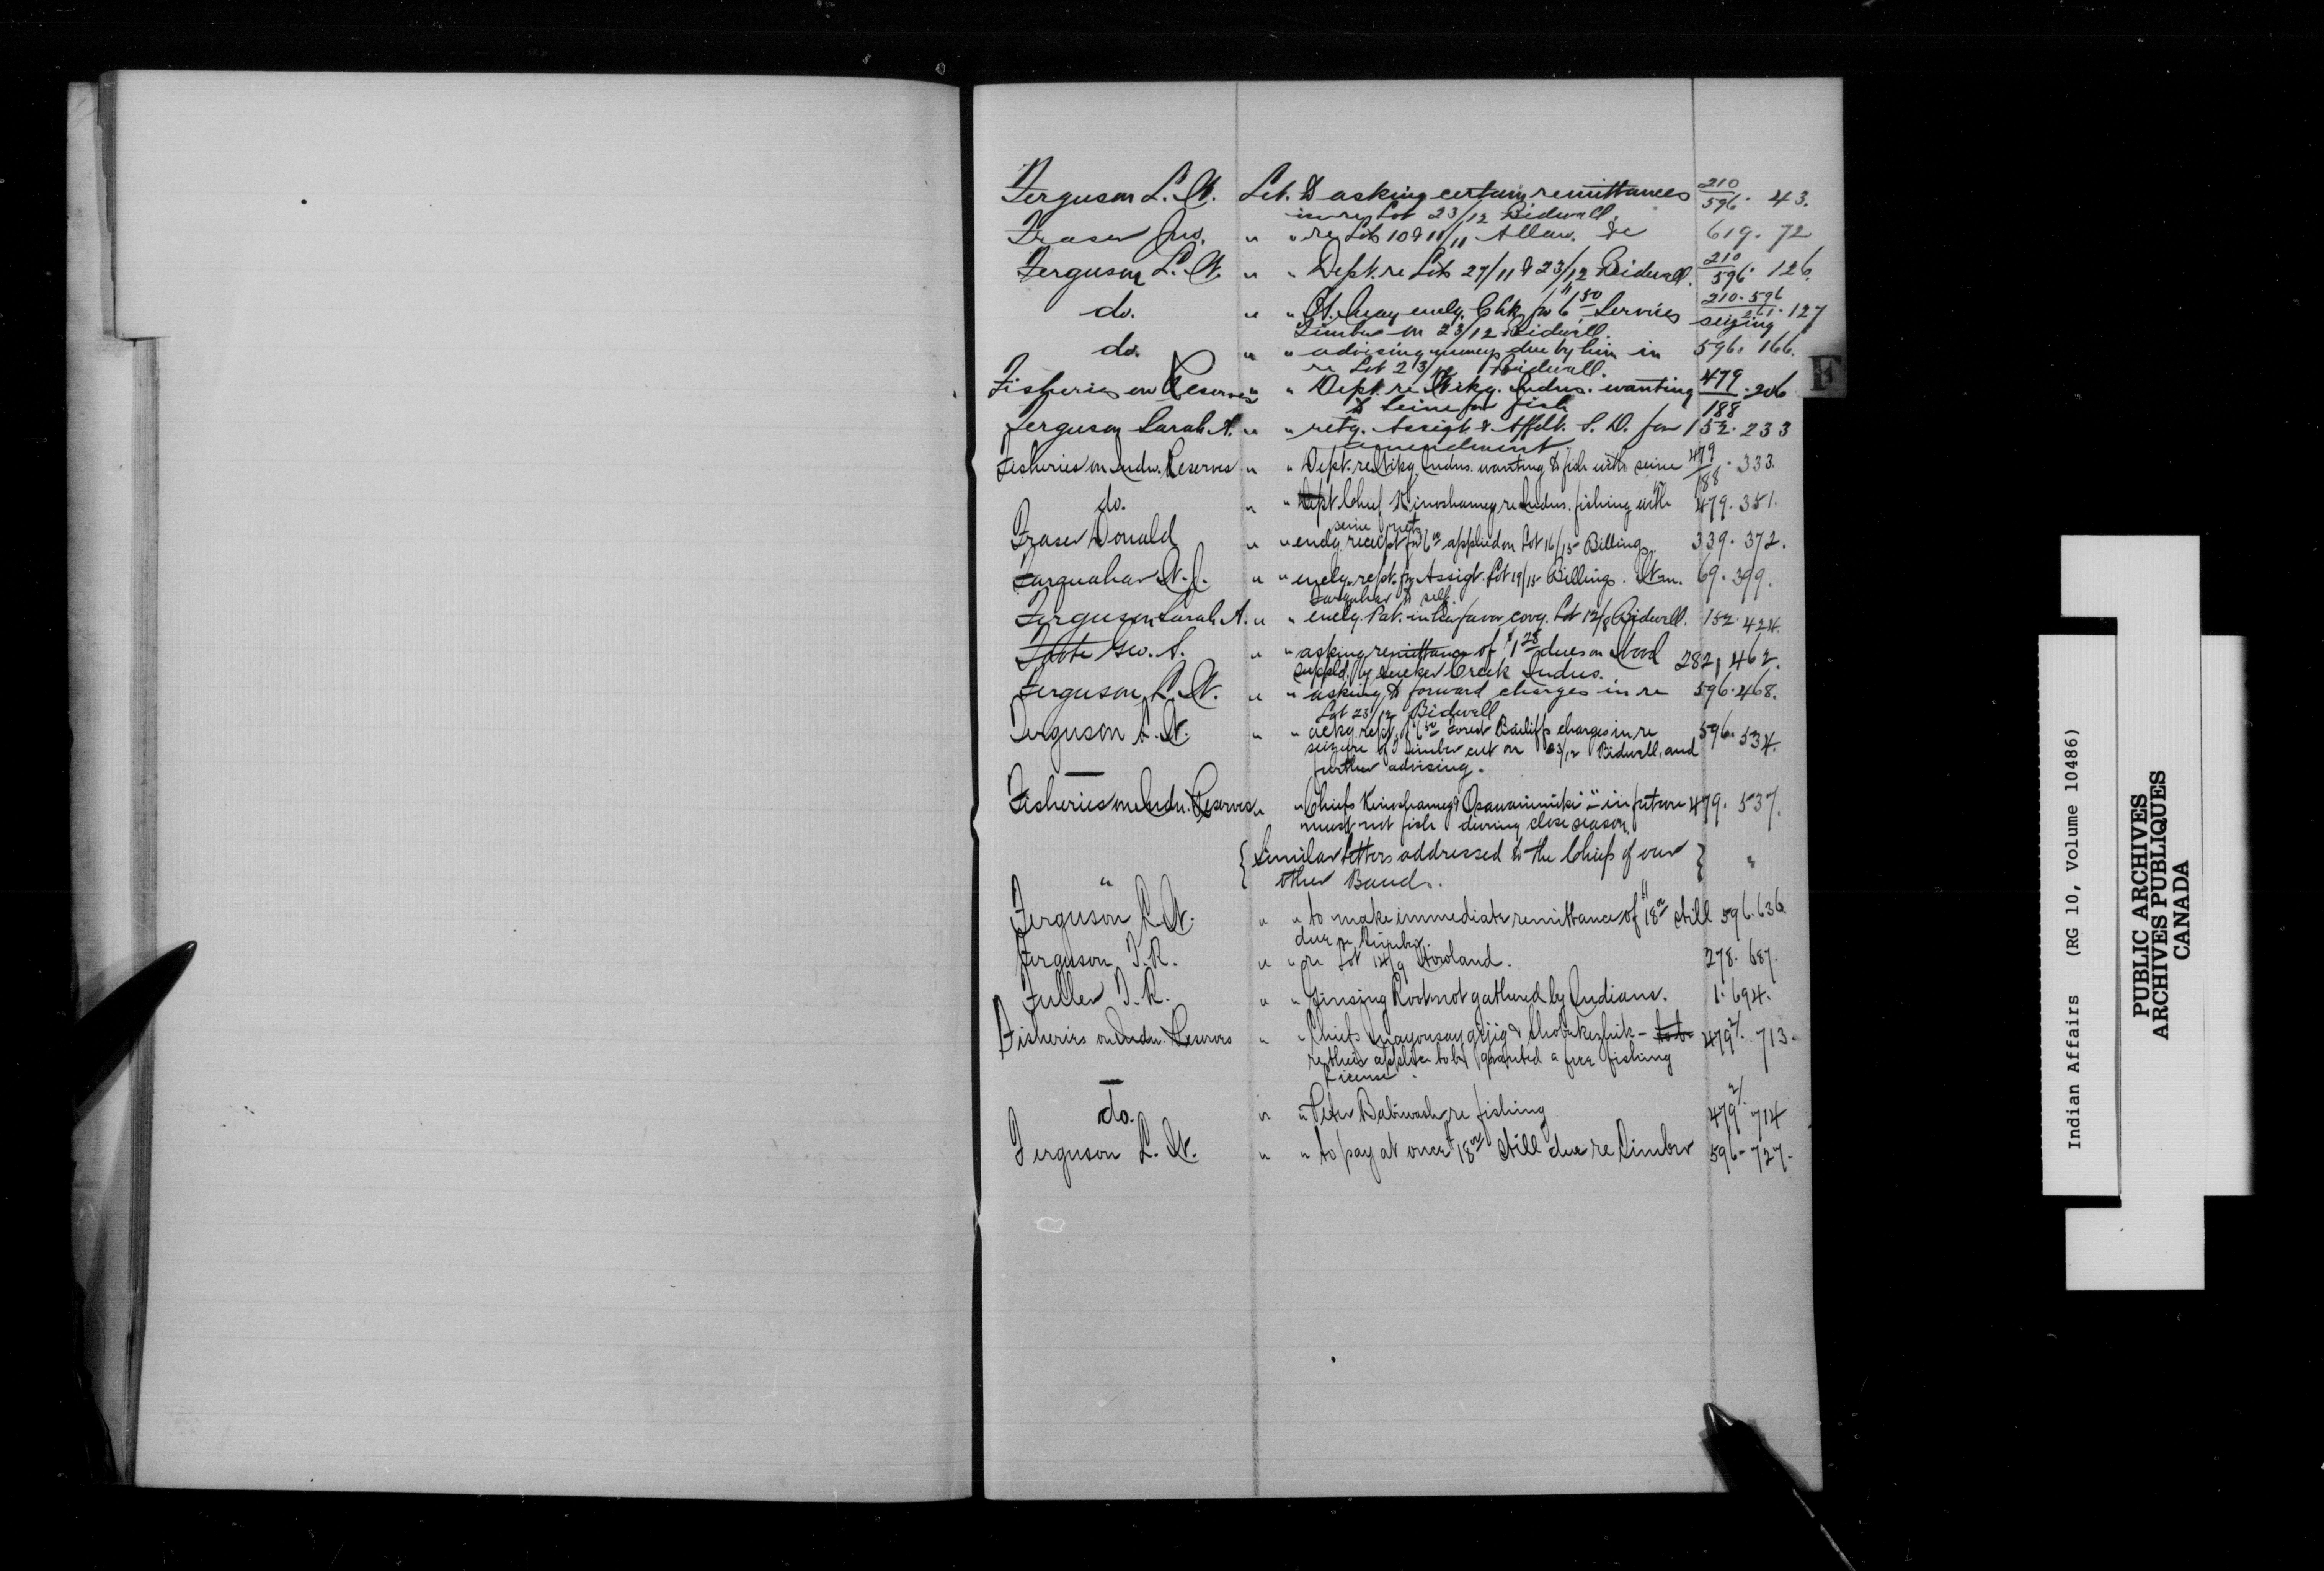 Ferguson L. W. Let. to asking certain remittances 210/596 . 43.
in re Lot 23/12 Bidwell.
Fraser Jno. " " re Lots 10 & 11/11 Allan. &c 619. 72
Ferguson L. W. " " Dept. re Lots 27/11 & 23/12 Bidwell. 210/596 . 126.
do. " " encly. Chk for $6.50 Services seizing 210.596/261 . 127
Timber on 23/12 Bidwell.
do. " " advising moneys due by him in 596. 166.
re Lot 23/12 Bidwell.
Fisheries on Reserves " " Dept. re Wiky. Indns. wanting 479/188 . 206
to Seine for fish
Ferguson Sarah A. " " retg. Assigt. & Affdt. S. D. for 152. 233
amendment
Fisheries on Indn. Reserves " " Dept. re Wiky. Indns. wanting to fish with seine 479/188 . 333.
do. " " Dept Chief Kinoshameg re Indns. fishing with 479. 351.
seine net
Fraser Donald " " encly. receipt for applied on Lot 16/15 Billing 339. 372.
Farquahar W. J. " " encly. rept. for Assigt. Lot 19/15 Billings. Wm. 69. 399.
Farquhar to self.
Ferguson Sarah A. " " encly. Pat. in her favor covg. Lot 12/8 Bidwell. 152. 424.
Foote Geo. S. " " asking remittance of $1.28 dues on Wood 282, 462.
suppld. by Sucker Creek Indns.
Ferguson, L. W. " " asking to forward charges in re 596. 468.
Lot 23/12 Bidwell
Ferguson L. W. " " ackg. rept. of Bailiffs charges in re 596. 534.
seizure of Timber cut on 23/12 Bidwell, and
further advising.
Fisheries on Indn. Reserves " " Chiefs Kinoshameg & - in future 479. 537.
must not fish during close season.
{Similar letters addressed to the Chiefs of our } "
" other Bands.
Ferguson L. W. " " to make immediate remittance of $18 still 596. 636.
due re Timber.
Ferguson, T. R. " " re Lot 14/9 Howland. 278. 687.
Fuller T. R. " " Ginsing Root not gathered by Indians. 1. 694.
Fisheries on Indn. Reserves " " Chiefs & - 479 2/. 713.
re their applicn to be granted a free fishing
License.
do. " " Peter Babiwash re fishing 479 2/. 714
Ferguson L. W. " " to pay at once $18 still due re Timber 596. 727.
F
Indian Affairs (RG 10, Volume 10486)
PUBLIC ARCHIVES
ARCHIVES PUBLIQUES
CANADA